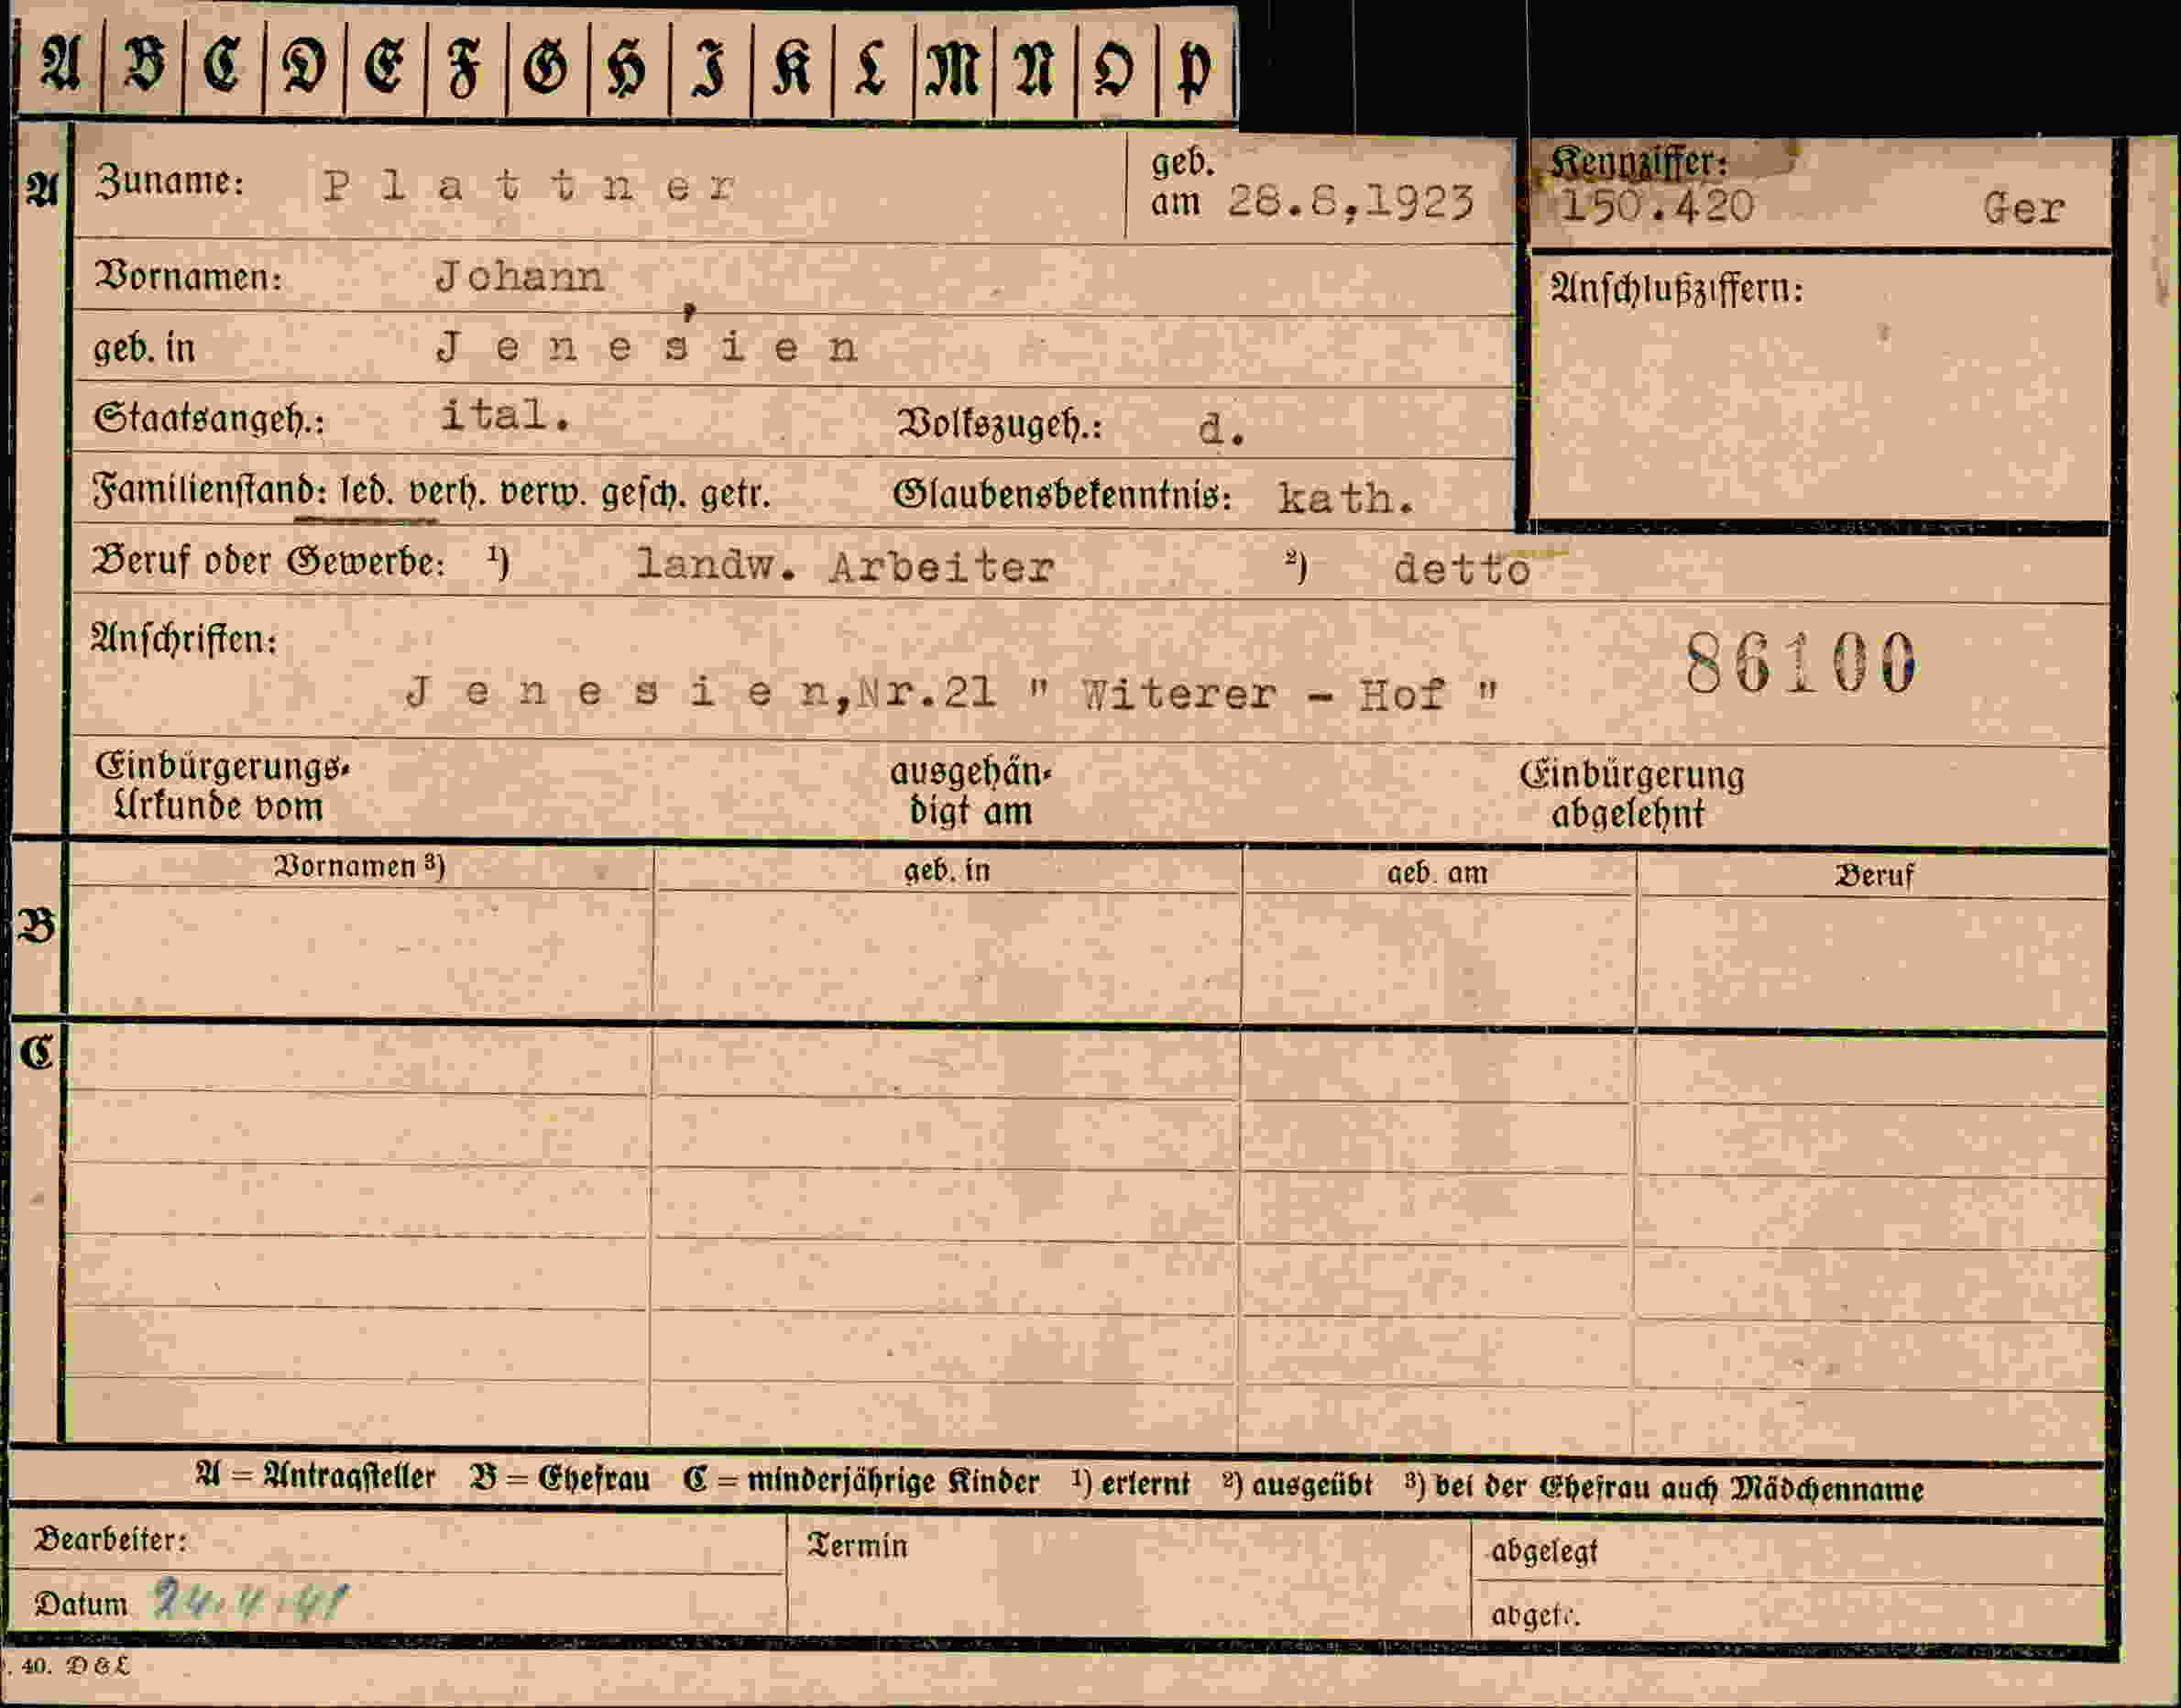 A B C D E F G H I K L M N O P
A Zuname: Plattner geb. am 28.8,1923 Kennziffer: 150.420 Ger
Vornamen: Johann Anschlußziffern:
geb. in Jenesien
Staatsangeh.: ital. Volkszugeh.: d.
Familienstand: led. verh. verw. gesch. getr. Glaubensbekenntnis: kath.
Beruf oder Gewerbe: ¹) landw. Arbeiter ²) detto
Anschriften: 86100
Jenesien,Nr.21 " Witerer - Hof "
Einbürgerungs- ausgehän- Einbürgerung
Urkunde vom digt am abgelehnt
Vornamen ³) geb. in geb. am Beruf
B
C
A = Antragsteller B = Ehefrau C = minderjährige Kinder ¹) erlernt ²) ausgeübt ³) bei der Ehefrau auch Mädchenname
Bearbeiter: Termin abgelegt
Datum 24.4.41 abgetr.
. 40. D & L